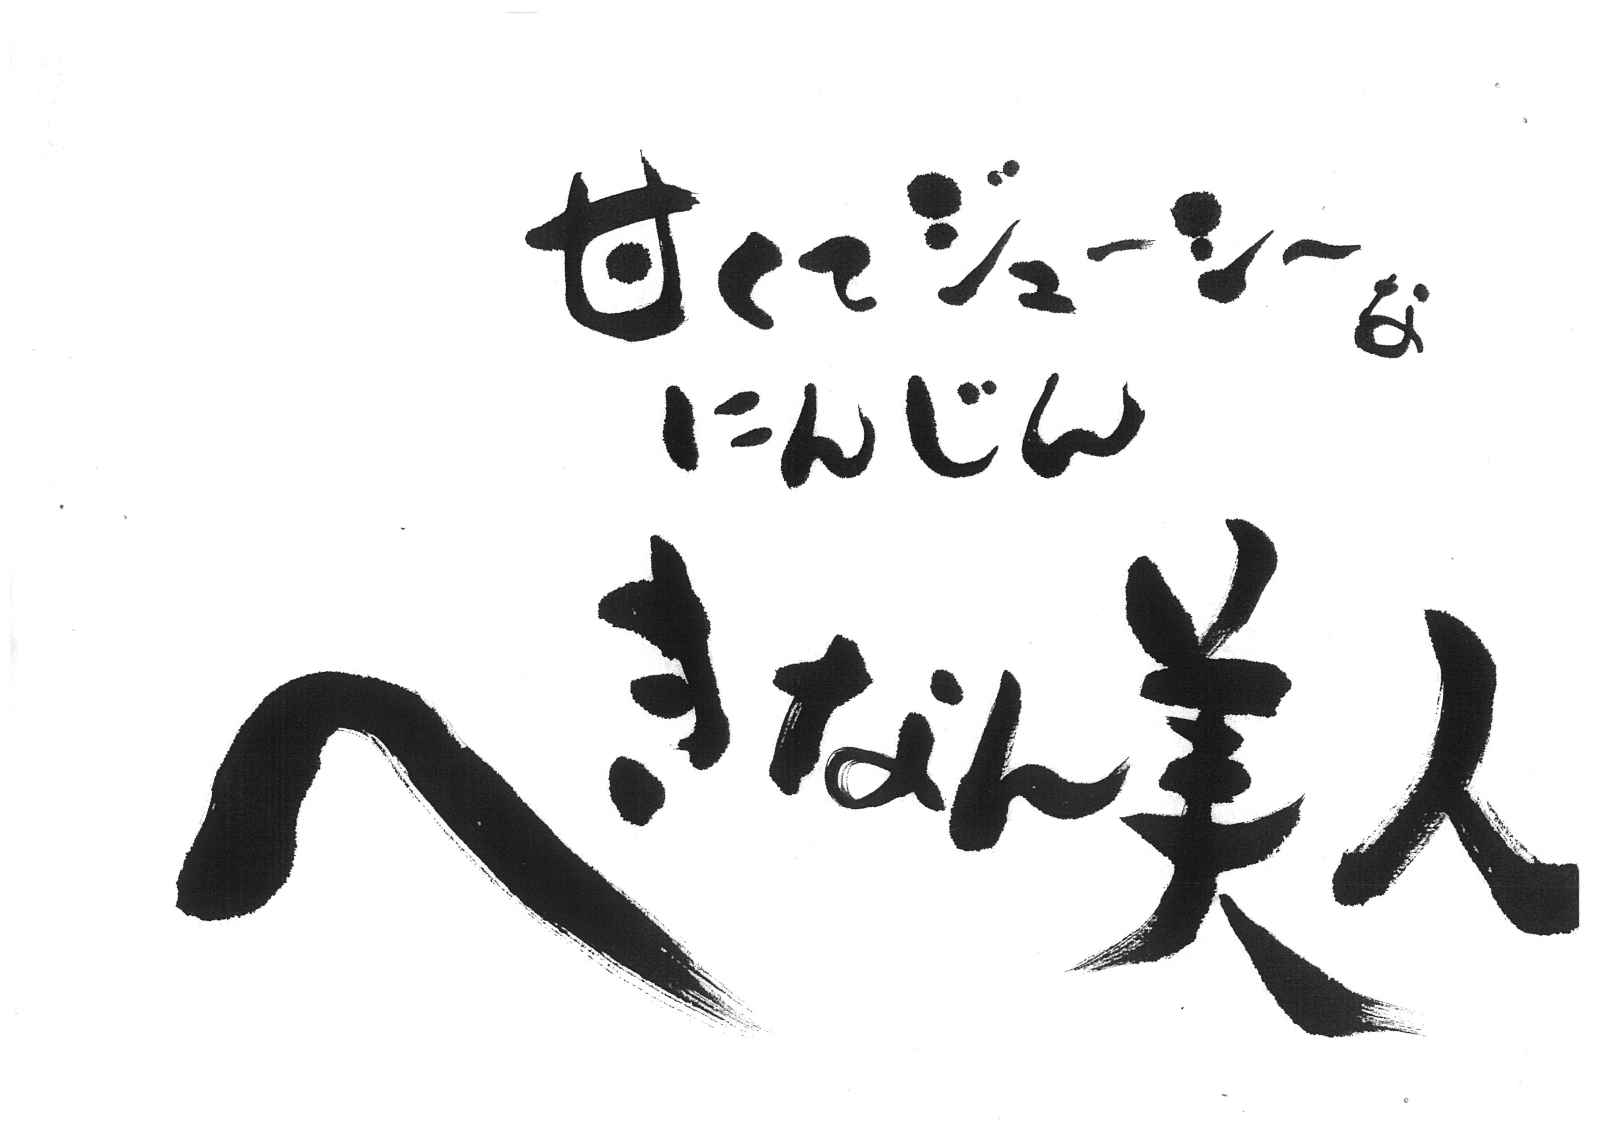 甘くてジューシーな
にんじん
へきなん美人